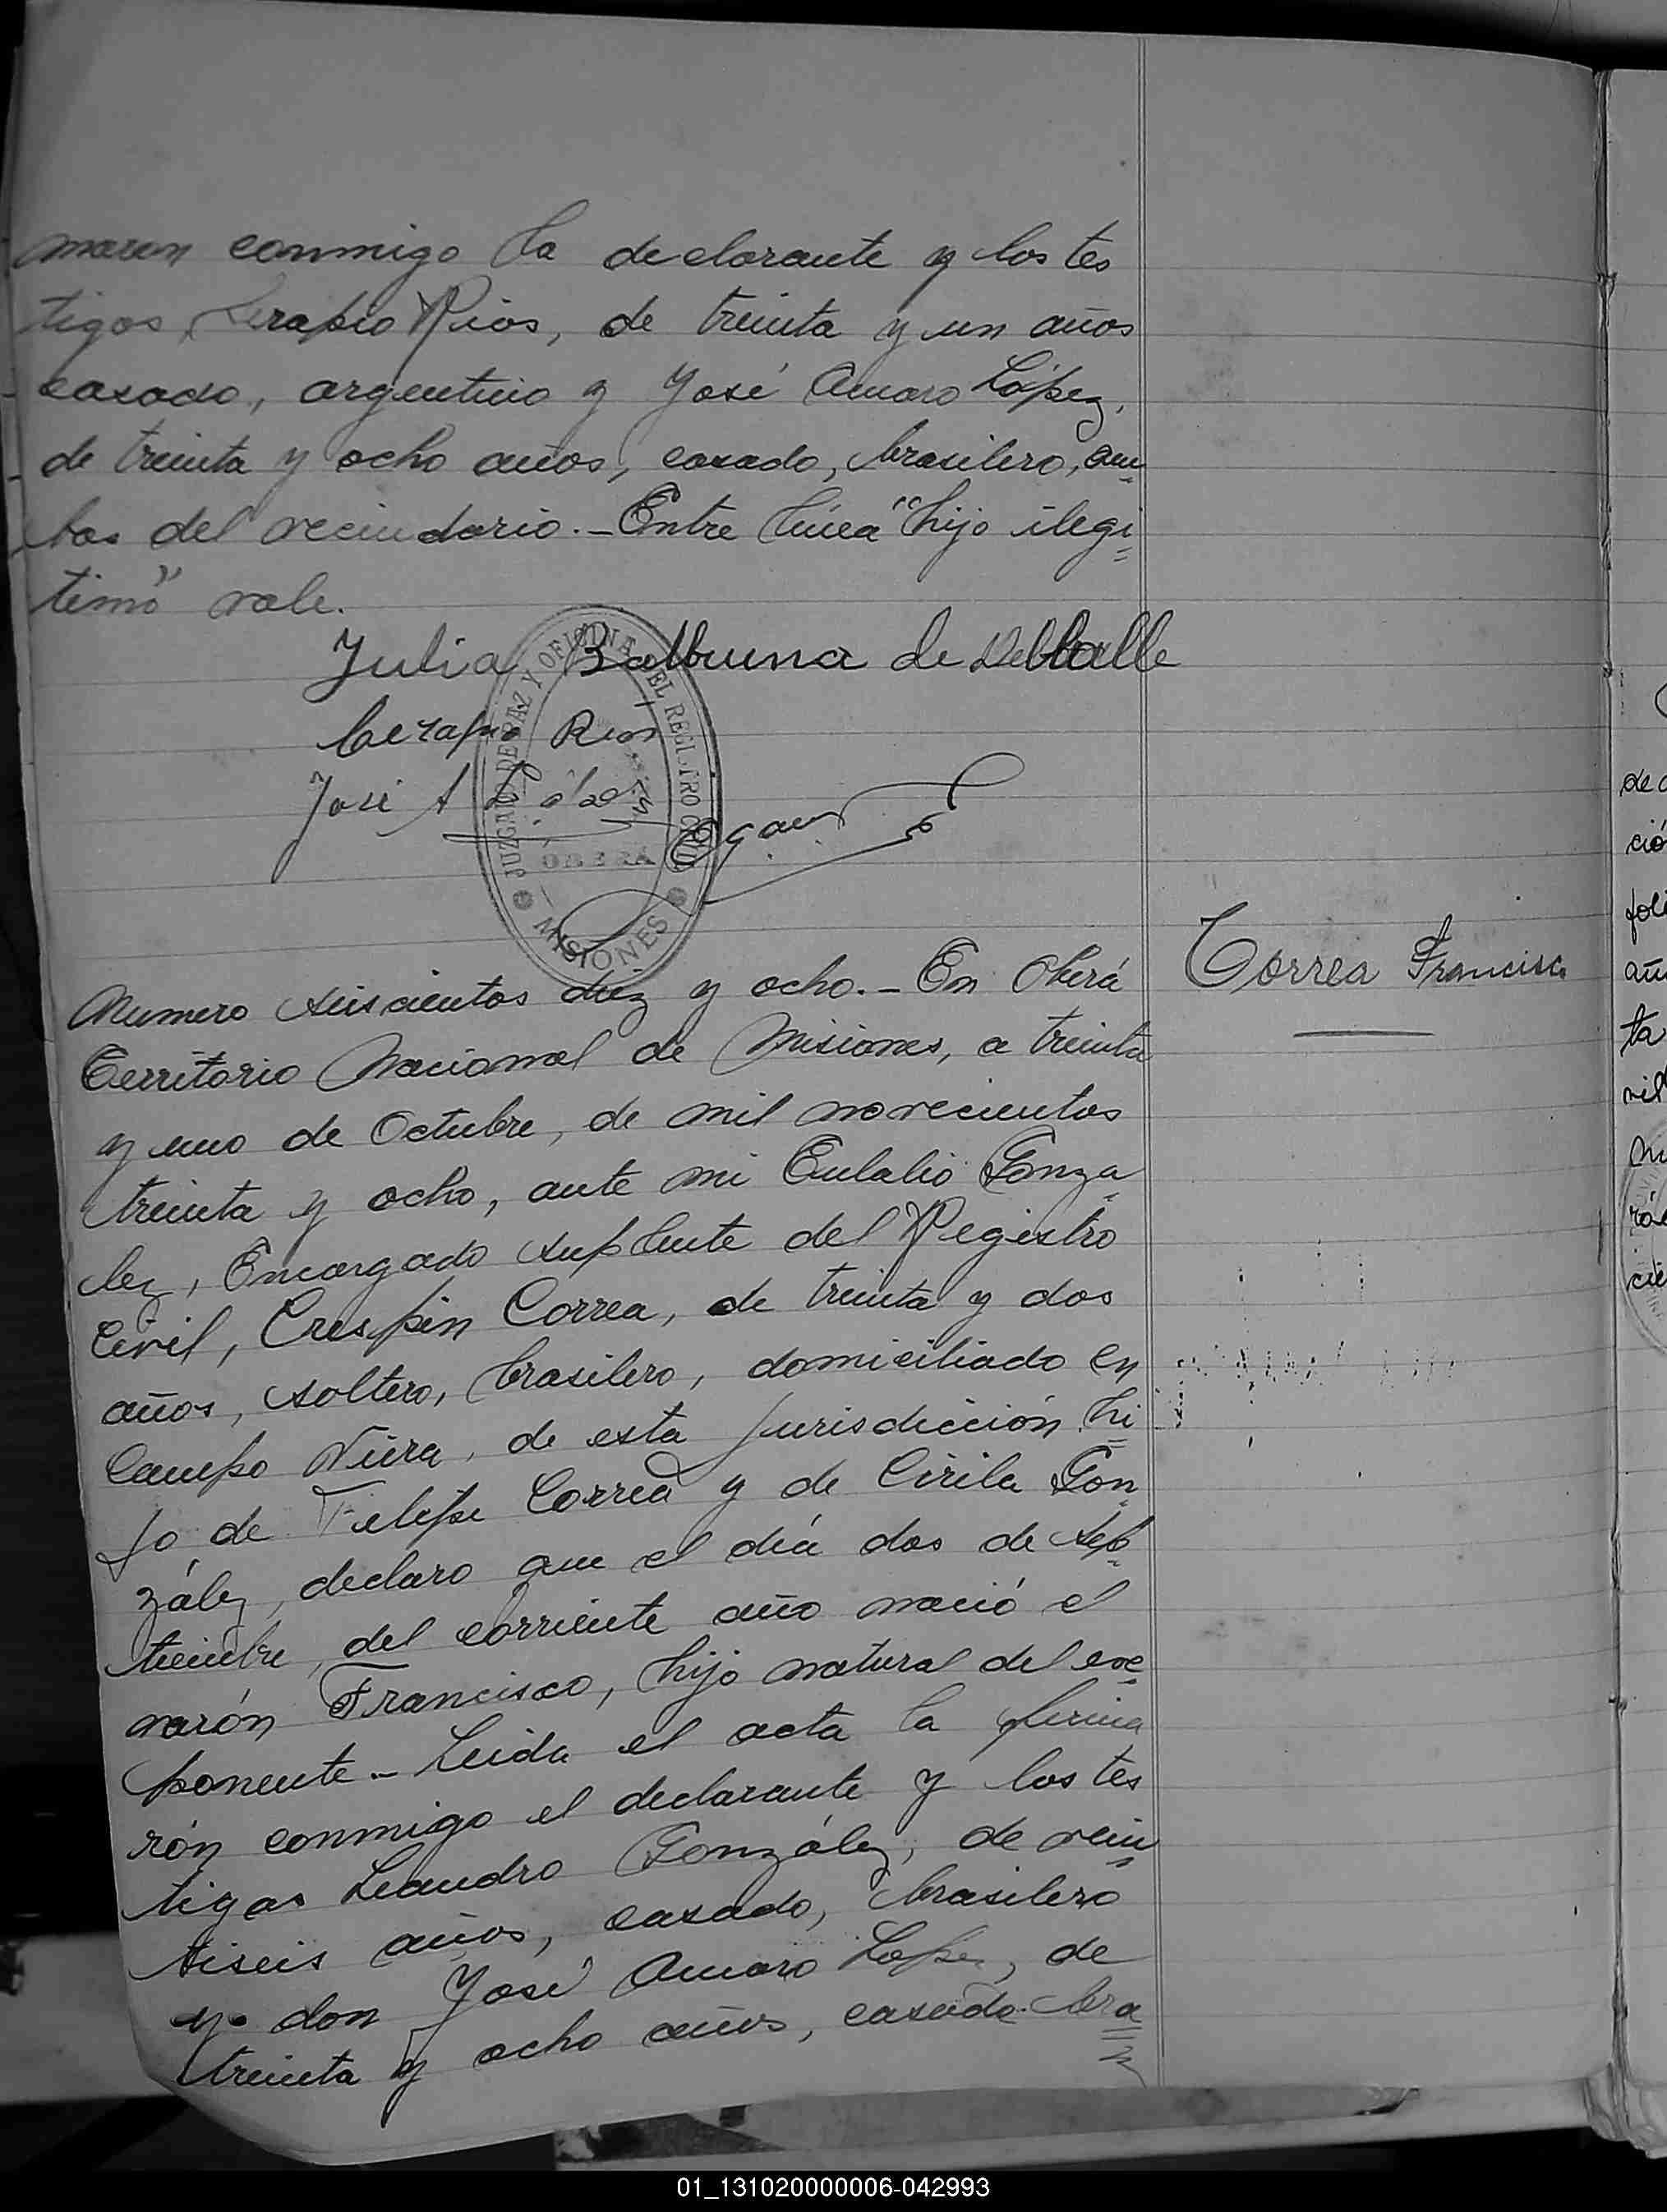 maron conmigo la declarante y los tes
tigos, Serapio Rios, de treinta y un años
casado, argentino y José Amaro López,
de treinta y ocho años, casado, brasilero, am
bos del vecindario.- Entre línea "hijo ilegi
timo" vale.
Julia Balbuena de Delvalle
Cerapio Rios
José A López
JUZGADO DE PAZ Y OFICINA DEL REGISTRO CIVIL
OBERÁ
MISIONES
Correa Francisco
Numero seiscientos diez y ocho.- En Oberá
Territorio Nacional de Misiones, a treinta
y uno de Octubre, de mil novecientos
treinta y ocho, ante mi Eulalio Gonza
lez, Encargado suplente del Registro
Civil, Crespin Correa, de treinta y dos
años, soltero, brasilero, domiciliado en
Campo Viera, de esta jurisdicción, hi
jo de Felipe Correa y de Cirila Gon
zález, declaro que el día dos de Sep
tiembre, del corriente año nació el
varón Francisco, hijo natural del ex
ponente.- Leida el acta la firma
rón conmigo el declarante y los tes
tigos Leandro González, de vein
tiseis años, casado, brasilero
y don José Amaro Lopez, de
treinta y ocho años, casado bra
de
ció
foli
añ
ta
vil
rá
cie
01_131020000006-042993